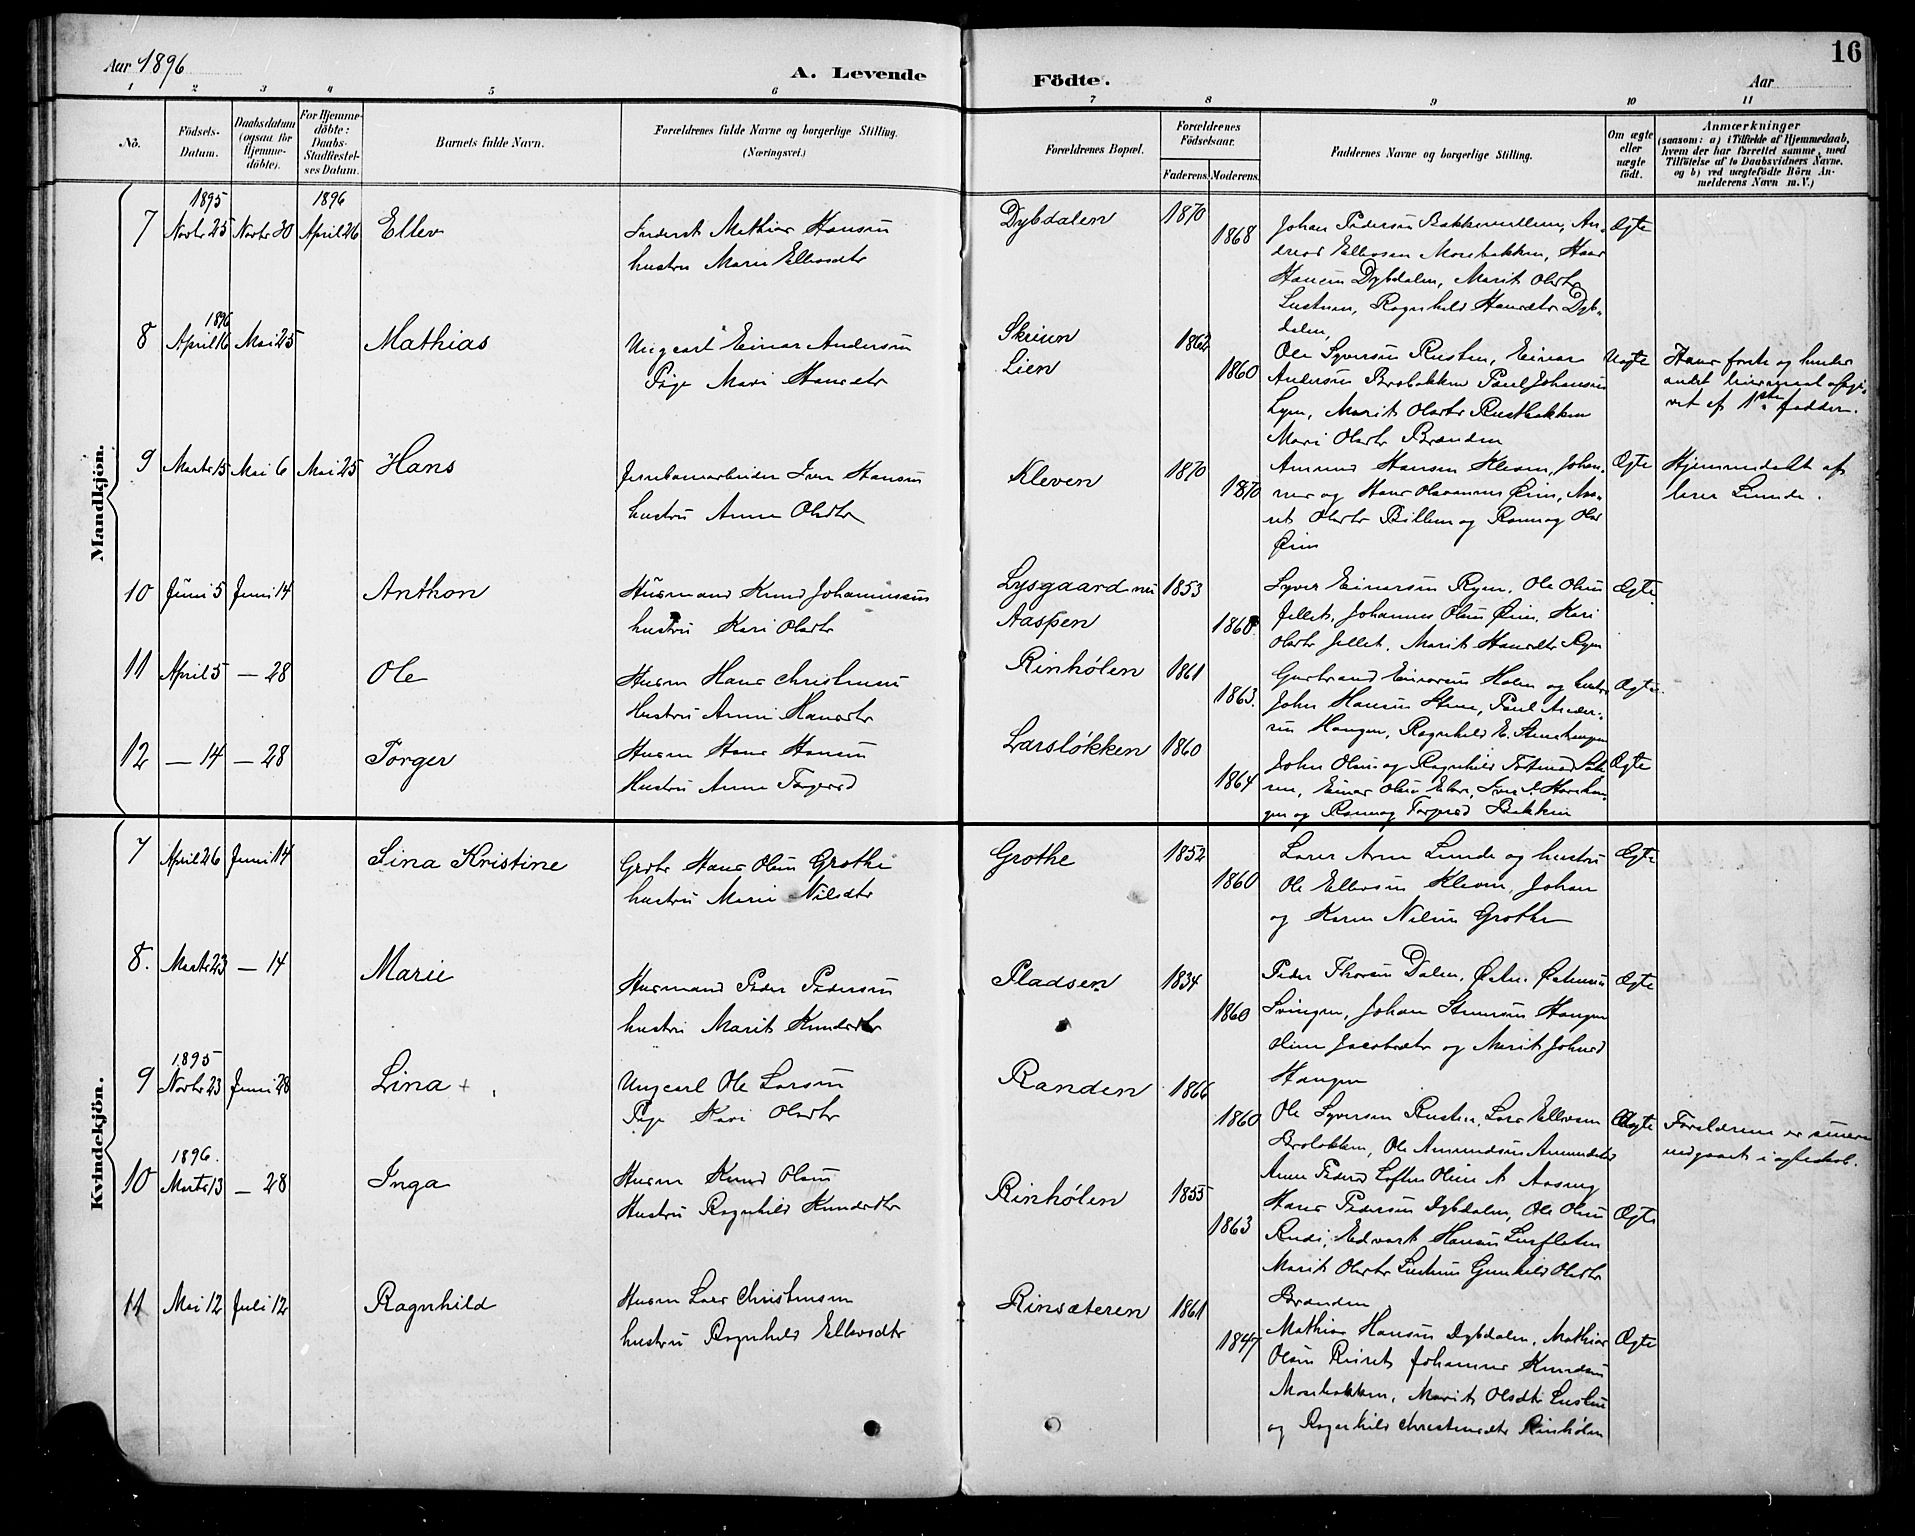 Aar 1896
A. Levende
Födte.
Aar
16
1 2 3 4 5 6 7 8 9 10 11
No.
Födsels-
Datum.
Daabsdatum
(ogsaa for
Hjemme-
döbte).
For Hjemme-
döbte:
Daabs-
Stadfæstel-
ses Datum.
Barnets fulde Navn.
Forældrenes fulde Navne og borgerlige Stilling.
(Næringsvei.)
Forældrenes Bopæl.
Forældrenes
Födselsaar.
Faderens. Moderens.
Faddernes Navne og borgerlige Stilling.
Om ægte
eller
uægte
födt.
Anmærkninger
(saasom: a) i Tilfælde af Hjemmedaab,
hvem der har forrettet samme, med
Tilföielse af to Daabsvidners Navne,
og b) ved uægtefödte Börn An-
melderens Navn m. V.)
Mandkjön.
1895 1896
7 Novbr 25 Novbr 30 April 26 Ellev
Mathias Hansen
hustru Marie Ellevsdtr
Dybdalen 1870
1868
Johan Pedersen Bakkemellem, An-
dreas Ellevsen Mosebakken, Hans
Hansen Dybdalen, Marit Olsdtr
Ragnhild Hansdtr Dyb-
dalen,
Ægte
1896
8 April 16 Mai 25 Mathias
Ungcarl Einar Andersen
Pige Mari Hansdtr
Skeien
Lien
1862
1860
Ole Syversen Rusten, Einar
Andersen Brobakken Paul Johansen
Lyen, Marit Olsdtr Rustbakken
Mari Olsdtr Brænden
Uægte
Hans første og hendes
andet leiermaal opgi-
vet af 1ste fadder.
9 Marts 15 Mai 6 Mai 25 Hans
Jernbanearbeider Iver Hansen
hustru Anne Olsdtr
Kleven 1870
1870
Amund Hansen Kleven, Johan-
nes og Hans Olsønner Øien,
Olsdtr og Rønnog Olsd
Øien
Ægte
Hjemmedøbt af
lærer Lunde.
10 Juni 5 Juni 14 Anthon
Husmand Knud Johannessen
hustru Kari Olsdtr
Lysgaard nu
Aaspen
1853
1860
Syver Einersen Ryen, Ole Olsen
Jellet, Johannes Olsen Øien, Kari
Olsdtr Jellet, Marit Hansdtr Ryen
Ægte
11 April 5 — 28 Ole
Husm Hans Christensen
Hustru Anne Hansdtr
Rinhølen 1861
1863.
Gudbrand Einarsen Holen og hustru
John Hansen Steen, Paul Ander-
sen Haugen, Ragnhild E. Steenhaugen
Ægte
12 — 14 — 28 Torger
Husm Hans Hansen
Hustru Anne Torgersd
Larsløkken 1860
1864
John Olsen og Ragnhild
Einar Olsen
og Rønnog Torgersd Bakken
Ægte
Kvindekjön.
7 April 26 Juni 14 Lina Kristine
Grdbr Hans Olsen Grothe
hustru Marie Nilsdtr
Grothe 1852
1860
Lærer Arne Lunde og hustru
Ole Ellevsen Kleven, Johan
og Karen Nilsen Grothe
Ægte
8. Marts 23 — 14 Marie
Husmand Peder Pedersen
hustru Marit Knudsdtr
Pladsen 1834
1860
Peder Thorsen Dalen,
Svingen, Johan Steensen Haugen
Oline Jacobsdtr og Marit Johnsd
Haugen
Ægte
1895
9 Novbr 23 Juni 28 Lina +
Ungcarl Ole Larsen
Pige Kari Olsdtr
Randen 1866
1860
Ole Syversen Rusten, Lars Ellevsen
Brobakken, Ole Amundsen
Anne Pedersd Loften Oline A Aasen
Uægte
Forældrene er senere
indgaaet i ægteskab.
1896.
10 Marts 13 — 28 Inga
Husm Knud Olsen
Hustru Ragnhild Knudsdtr
Rinhølen 1855
1863
Hans Pedersen Dybdalen, Ole Olsen
Rudi, Edvart Hansen
Marit Olsdtr Gunhild Olsdtr
Brænden
Ægte
11 Mai 12 Juli 12 Ragnhild
Husm Lars Christensen
hustru Ragnhild Ellevsdtr
Rinsæteren 1861
1847
Mathias Hansen Dybdalen, Mathias
Olsen Johannes Knudsen
Mosebakken, Marit Olsdtr
og Ragnhild Christensdtr Rinhølen
Ægte